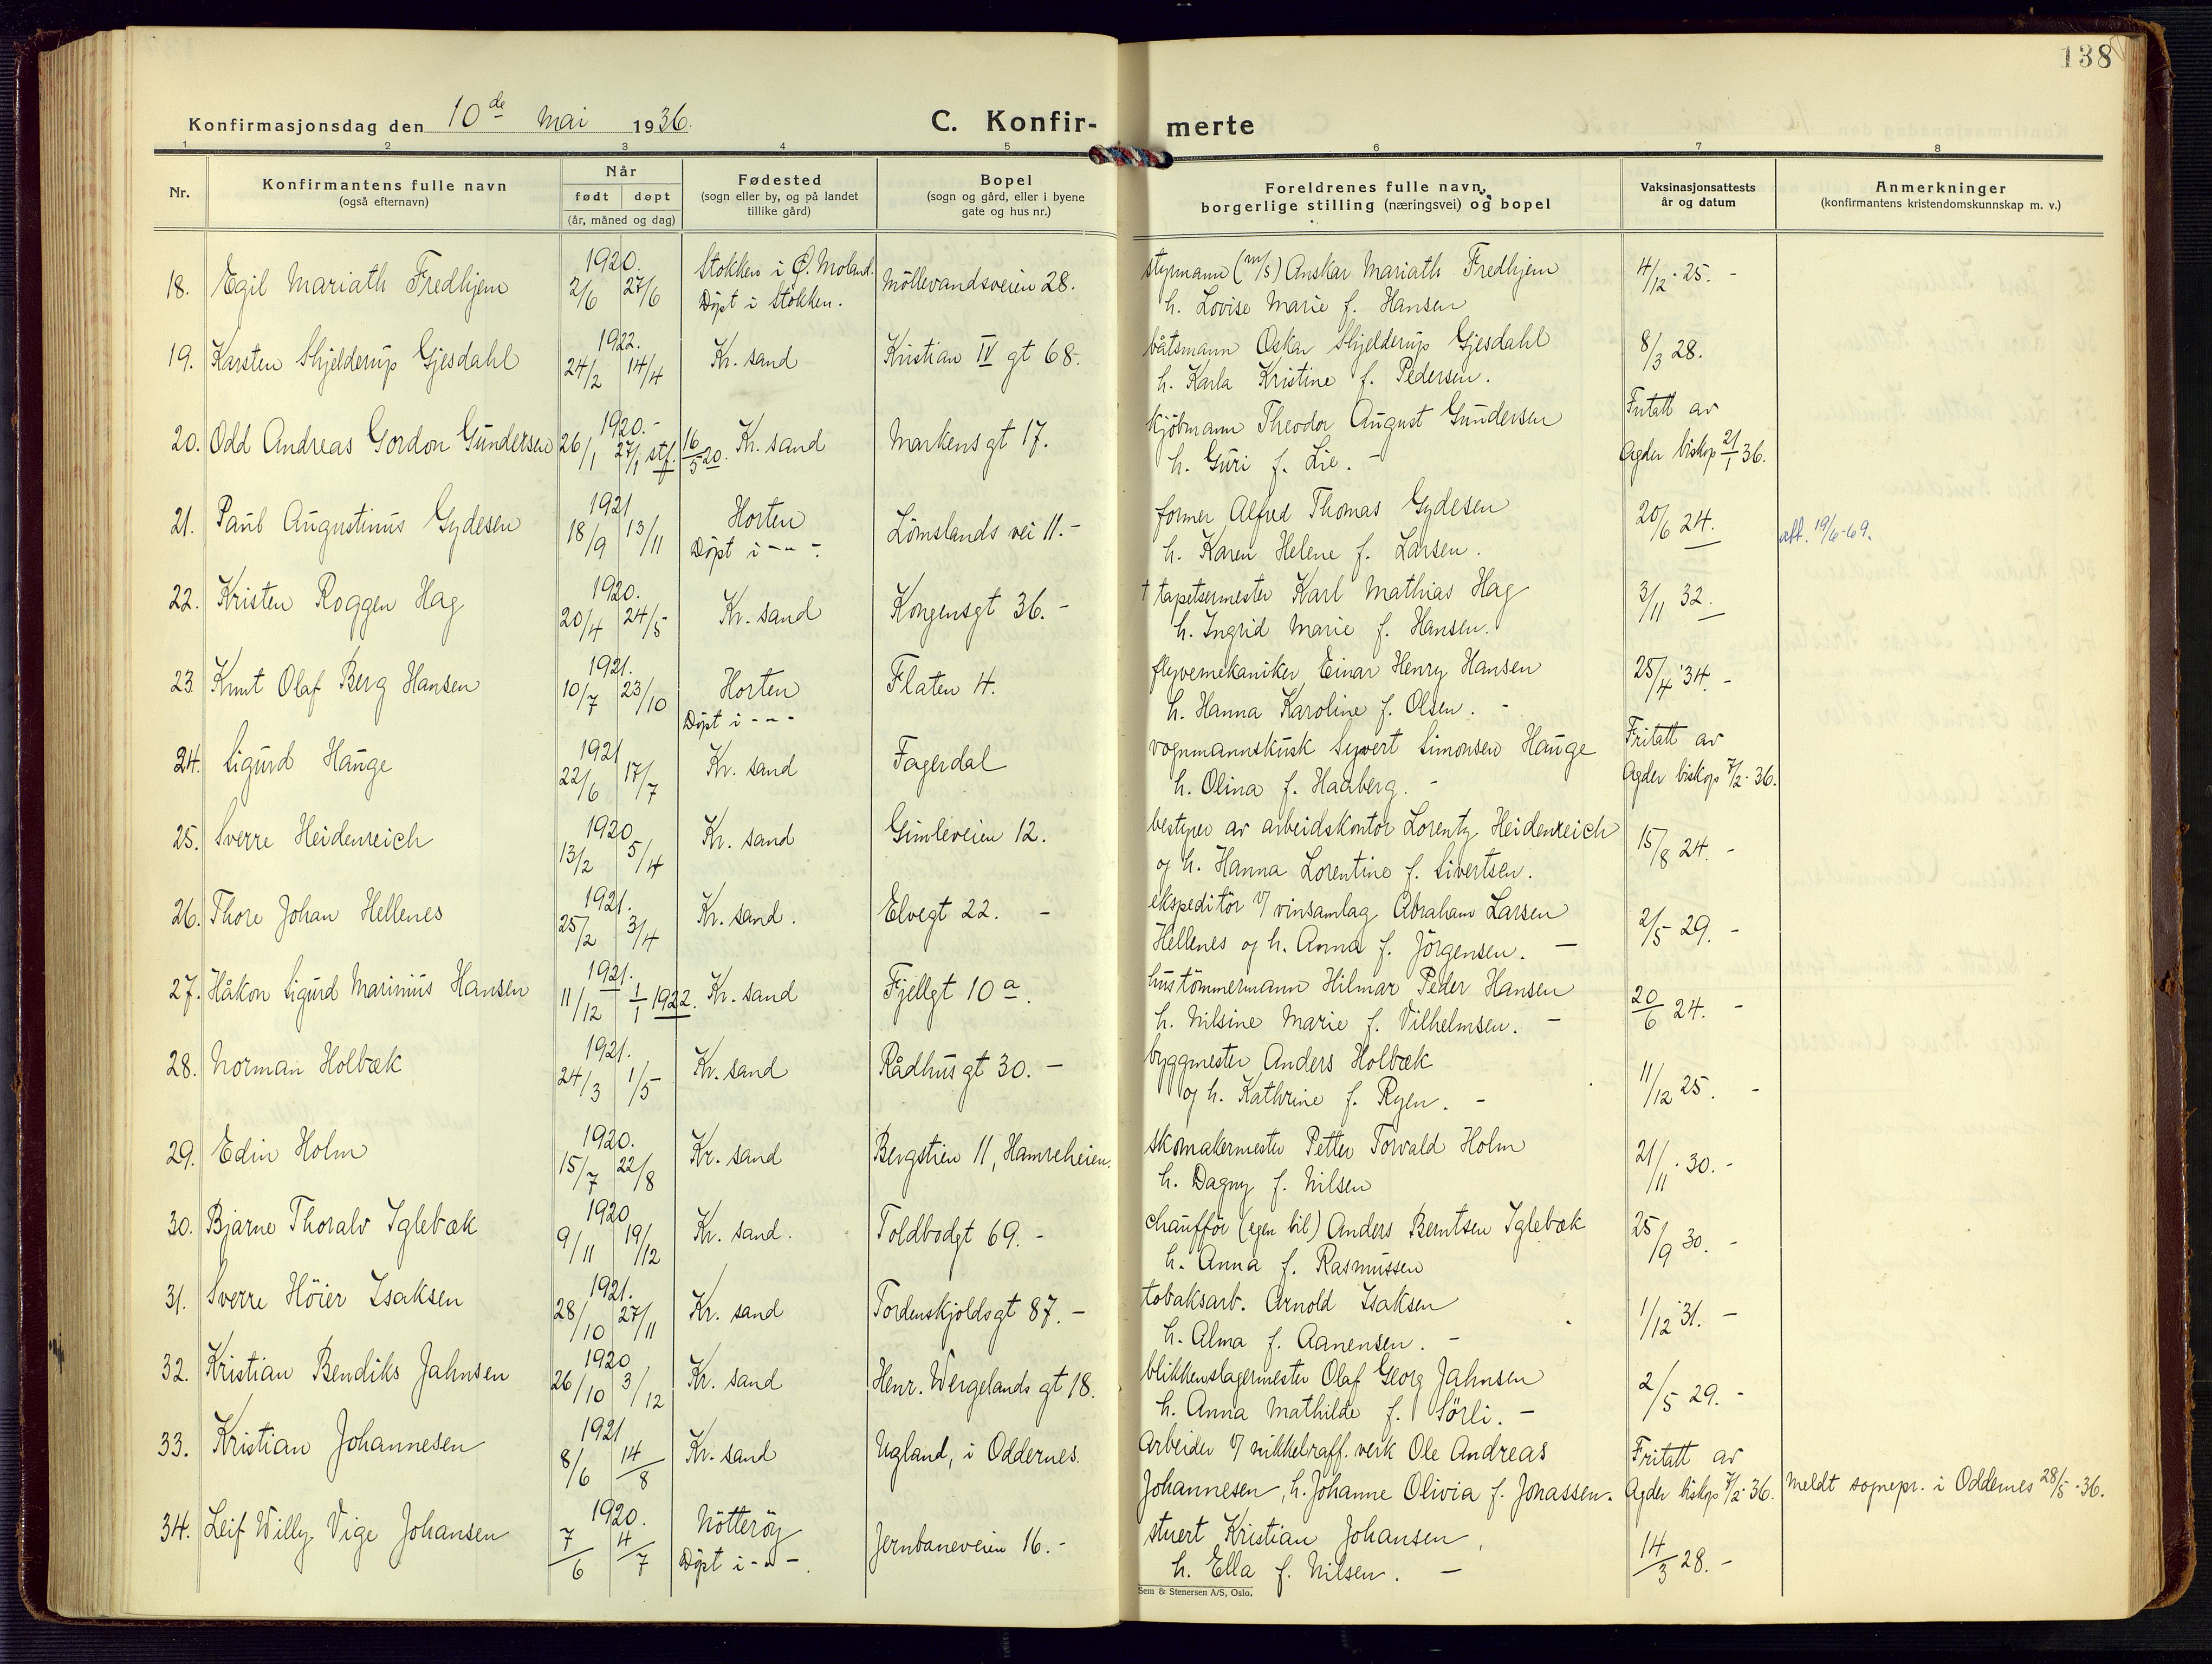 138
Konfirmasjonsdag den 10de mai 1936.
C. Konfir- merte
1 2 3 4 5 6 7 8
Nr.
Konfirmantens fulle navn
(også efternavn)
Når
født døpt
(år, måned og dag)
Fødested
(sogn eller by, og på landet
tillike gård)
Bopel
(sogn og gård, eller i byene
gate og hus nr.)
Foreldrenes fulle navn,
borgerlige stilling (næringsvei) og bopel
Vaksinasjonsattests
år og datum
Anmerkninger
(konfirmantens kristendomskunnskap m. v.)
18. Egil Mariath Fredhjem 1920. 2/6 27/6 Stokken i Ø. Moland. Døpt i Stokken. Møllevandsveien 28. styrmann (m/s) Anskar Mariath Fredhjem 4/12 - 25. -
h. Lovise Marie f. Hansen
19. Karsten Skjelderup Gjesdahl 1922. 24/2 14/4 Kr. sand Kristian IV gt 68. båtsmann Oskar Skjelderup Gjesdahl 8/3 28.
h. Karla Kristine f. Pedersen.
20. Odd Andreas Gordon Gundersen 1920. - 26/1 27/1 stf. 16/5 20. Kr. sand Markensgt 17. kjøbmann Theodor August Gundersen Fritatt av
h. Guri f. Lie. - Agder biskop 21/1 36.
21. Paul Augustinus Gydesen 1921 18/9 13/11 Horten Døpt i -"-. Lømslands vei 11. - former Alfred Thomas Gydesen 20/6 24. att. 19/6-69.
h. Karen Helene f. Larsen.
22. Kristen Roggen Hag 1920. 20/4 24/5 Kr. sand Kongensgt 36. - † tapetsermester Karl Mathias Hag 3/11 32.
h. Ingrid Marie f. Hansen.
23. Knut Olaf Berg Hansen 1921. 10/7 23/10 Horten Døpt i -"- Flaten 4. flyvemekaniker Einar Henry Hansen 25/4 '34. -
h. Hanna Karoline f. Olsen. -
24. Sigurd Hauge 1921 22/6 17/7 Kr. sand Fagerdal vognmannskusk Syvert Simonsen Hauge Fritatt av
h. Olina f. Haaberg. - Agder biskop 7/2 - 36.
25. Sverre Heidenreich 1920 13/2 5/4 Kr. sand Gimleveien 12. bestyrer av arbeidskontor Lorentz Heidenreich 15/8 24. -
og h. Hanna Lorentine f. Sivertsen.
26. Thore Johan Hellenes 1921. 25/2 3/4 Kr. sand. Elvegt 22. - ekspeditør v/ vinsamlag Abraham Larsen 2/5 29. -
Hellenes og h. Anna f. Jørgensen. -
27. Håkon Sigurd Marinius Hansen 1921. 11/12 1/1 1922. Kr. sand Fjellgt 10 a. hustømmermann Hilmar Peder Hansen 20/6 24. -
h. Nilsine Marie f. Vilhelmsen. -
28. Norman Holbæk 1921. 24/3 1/5 Kr. sand Rådhusgt 30. - byggmester Anders Holbæk 11/12 25. -
og h. Kathrine f. Ryen. -
29. Edin Holm 1920. 15/7 22/8 Kr. sand Bergstien 11, Hamreheien. skomakermester Petter Torvald Holm 21/11 - 30. -
h. Dagny f. Nilsen
30. Bjarne Thoralv Iglebæk 1920 9/11 19/12 Kr. sand. Toldbodgt 69. - chauffør (egen bil) Anders Berntsen Iglebæk 25/9 30. -
h. Anna f. Rasmussen
31. Sverre Höier Isaksen 1921. 28/10 27/11 Kr. sand Tordenskjoldsgt 87. - tobaksarb. Arnold Isaksen 1/12 31. -
h. Alma f. Aanensen. -
32. Kristian Bendiks Jahnsen 1920 26/10 3/12 Kr. sand Henr. Wergelands gt 18. blikkenslagermester Olaf Georg Jahnsen 2/5 29. -
h. Anna Mathilde f. Sørli. -
33. Kristian Johannesen 1921 8/6 14/8 Kr. sand Ugland, i Oddernes. Arbeider v/ nikkelraff. verk Ole Andreas Fritatt av
Johannesen, h. Johanne Olivia f. Jonassen. Agder biskop 7/2 - 36. Meldt sognepr. i Oddernes 28/5 - 36.
34. Leif Willy Vige Johansen 1920. 7/6 4/7 Nøtterøy Døpt i -"-. Jernbaneveien 16. - stuert Kristian Johansen, 14/3 28. -
h. Ella f. Nilsen. -
Sem & Stenersen A/S, Oslo.